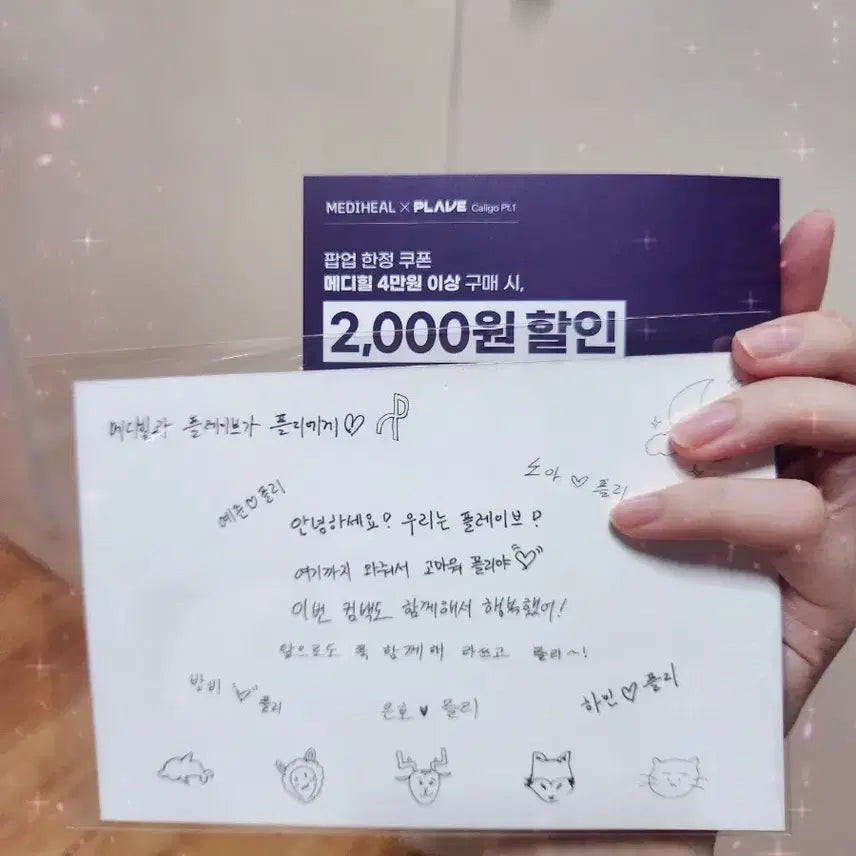 MEDIHEAL × PLAVE Caligo Pt.1
팝업 한정 쿠폰
메디힐 4만원 이상 구매 시,
2,000원 할인
메디힐과 플레이브가 플리에게♡
노아 ♡ 플리
예준♡플리
안녕하세요? 우리는 플레이브?
여기까지 와줘서 고마워 플리야♡
이번 컴백도 함께해서 행복했어!
앞으로도 쭉 함께해
밤비 ♡ 플리
은호 ♥ 플리
하민♡플리